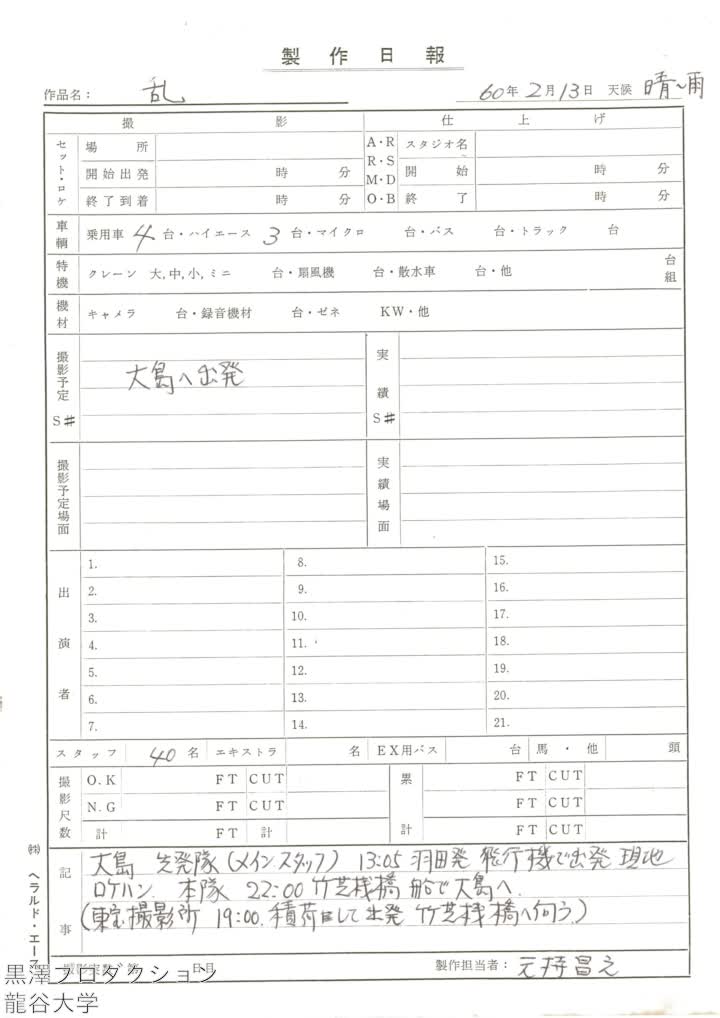 製作日報
作品名： 乱 60年2月13日 天候 晴〜雨
撮影 仕上げ
セット・ロケ 場所 A・R スタジオ名
開始出発 時 分 R・S 開始 時 分
M・D
終了到着 時 分 O・B 終了 時 分
車輌 乗用車 4 台・ハイエース 3 台・マイクロ 台・バス 台・トラック 台
特機 クレーン 大,中,小,ミニ 台・扇風機 台・散水車 台・他 台組
機材 キャメラ 台・録音機材 台・ゼネ KW・他
撮影予定 S# 大島へ出発 実績 S#
撮影予定場面 実績場面
出演者
1. 8. 15.
2. 9. 16.
3. 10. 17.
4. 11. 18.
5. 12. 19.
6. 13. 20.
7. 14. 21.
スタッフ 40名 エキストラ 名 EX用バス 台 馬・他 頭
撮影尺数 O.K FT CUT 累計 FT CUT
N.G FT CUT FT CUT
計 FT 計 FT CUT
記事
大島 先発隊(メインスタッフ) 13:05 羽田発 飛行機で出発 現地
ロケハン. 本隊 22:00 竹芝桟橋 船で大島へ.
(東宝撮影所 19:00. 積荷して出発 竹芝桟橋へ向う.)
製作担当者： 元持昌之
㈱ ヘラルド・エース
黒澤プロダクション
龍谷大学